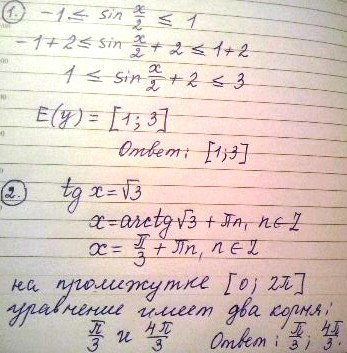 1. -1 ≤ sin x/2 ≤ 1
-1+2 ≤ sin x/2 + 2 ≤ 1+2
1 ≤ sin x/2 + 2 ≤ 3
E(y) = [1; 3]
Ответ: [1;3]
2. tg x = √3
x = arctg √3 + πn, n ∈ Z
x = π/3 + πn, n ∈ Z
на промижутке [0; 2π]
уравнение имеет два корня:
π/3 и 4π/3 Ответ: π/3; 4π/3.